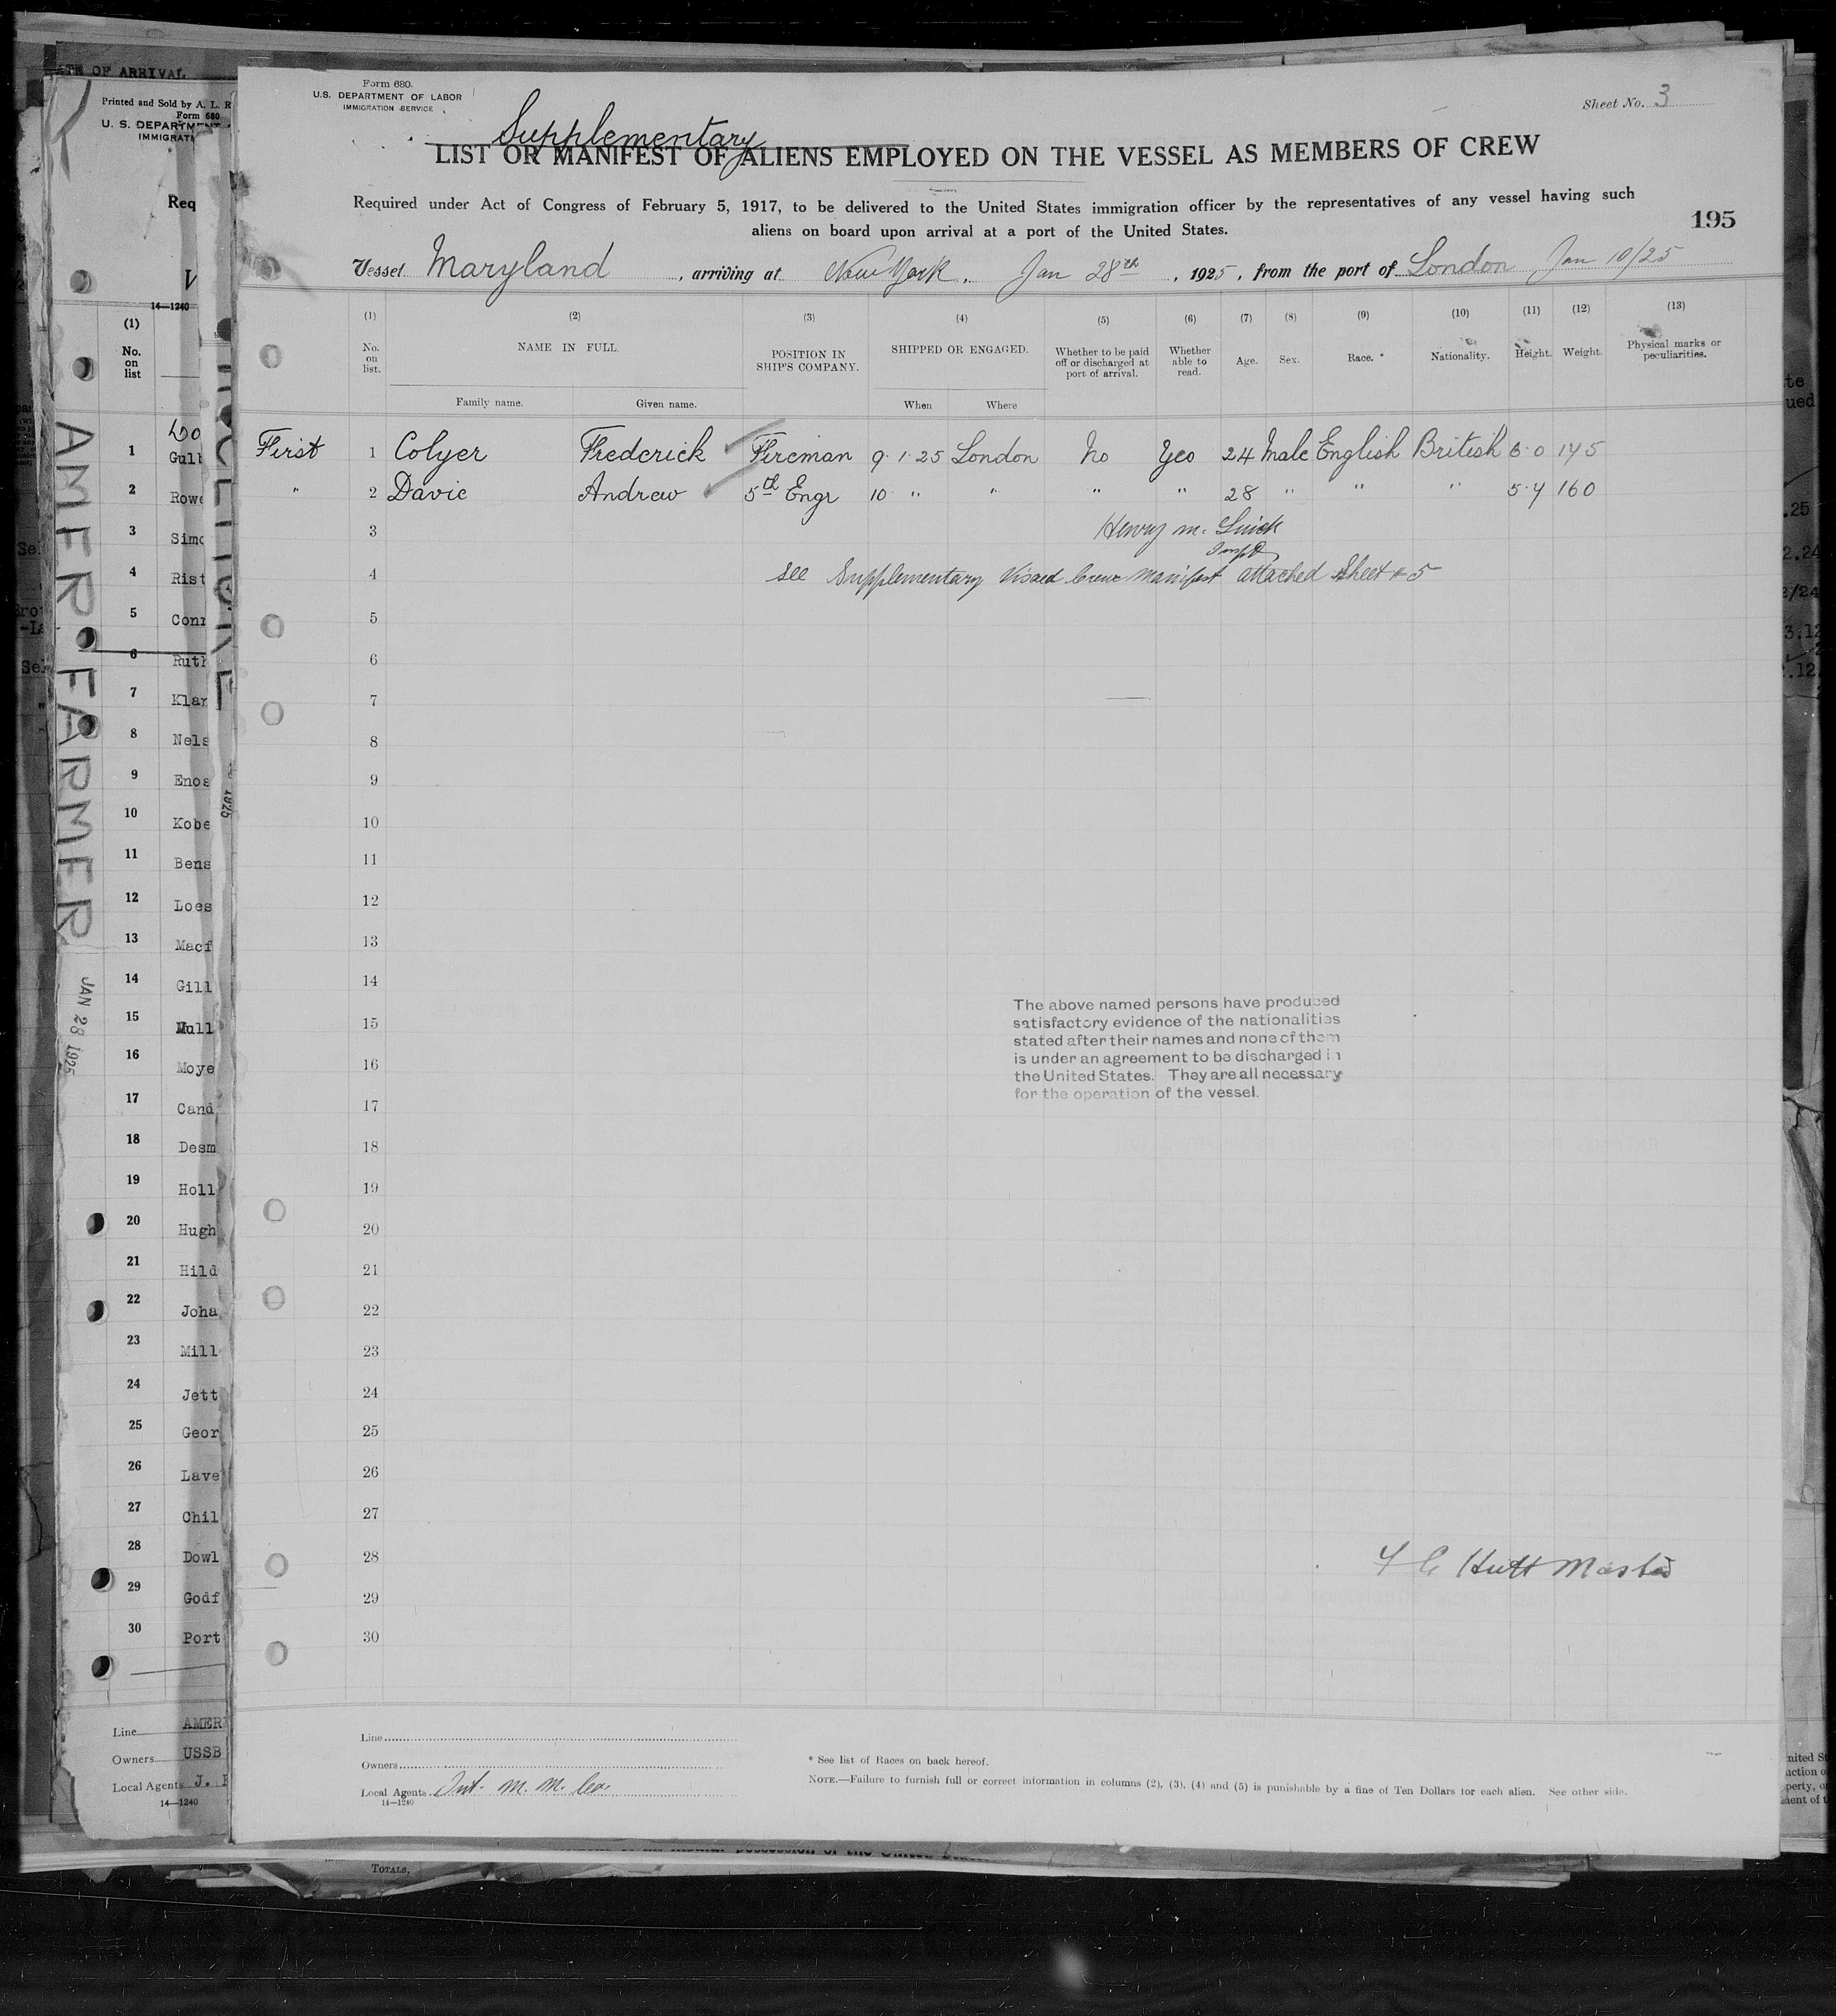 Form 680.
U.S. DEPARTMENT OF LABOR
IMMIGRATION SERVICE
Sheet No. 3
Supplementary
LIST OR MANIFEST OF ALIENS EMPLOYED ON THE VESSEL AS MEMBERS OF CREW
Required under Act of Congress of February 5, 1917, to be delivered to the United States immigration officer by the representatives of any vessel having such
aliens on board upon arrival at a port of the United States.
195
Vessel Maryland, arriving at New York, Jan 28th, 1925, from the port of London Jan 10/25
(1) (2) (3) (4) (5) (6) (7) (8) (9) (10) (11) (12) (13)
No. on list. NAME IN FULL POSITION IN SHIP'S COMPANY. SHIPPED OR ENGAGED. Whether to be paid off or discharged at port of arrival. Whether able to read. Age. Sex. Race. * Nationality. Height. Weight. Physical marks or peculiarities.
Family name. Given name. When Where
First 1 Colyer Frederick Fireman 9 1 25 London No Yes 24 Male English British 145
" 2 Davie Andrew 5th Engr 10 " " " " 28 " " " 160
3 Henry M.
4 See Supplementary Visaed Crew Manifest attached Sheet # 5
5
6
7
8
9
10
11
12
13
14
The above named persons have produced
satisfactory evidence of the nationalities
15
stated after their names and none of them
is under an agreement to be discharged in
16
the United States. They are all necessary
for the operation of the vessel.
17
18
19
20
21
22
23
24
25
26
27
28 Hutt Master
29
30
Line
Owners
Local Agents Int. M. M. Co.
14—1240
* See list of Races on back hereof.
NOTE.—Failure to furnish full or correct information in columns (2), (3), (4) and (5) is punishable by a fine of Ten Dollars for each alien. See other side.
ATE OF ARRIVAL
Printed and Sold by A. L. R
Form 680
U. S. DEPARTM
IMMIGRATI
Req
V
14—1240
(1)
No.
on
list
1 Gull
2 Rowe
3 Simo
4 Rist
5 Conn
6 Ruth
7 Klar
8 Nels
9 Enos
10 Kobe
11 Bens
12 Loes
13 Macf
14 Gill
15 Mull
16 Moye
17 Cand
18 Desm
19 Holl
20 Hugh
21 Hild
22 Joha
23 Mill
24 Jett
25 Geor
26 Lave
27 Chil
28 Dowl
29 Godf
30 Port
AMER. FARMER
JAN 28 1925
Line AMER
Owners USSB
Local Agents J.
14—1240
TOTALS,